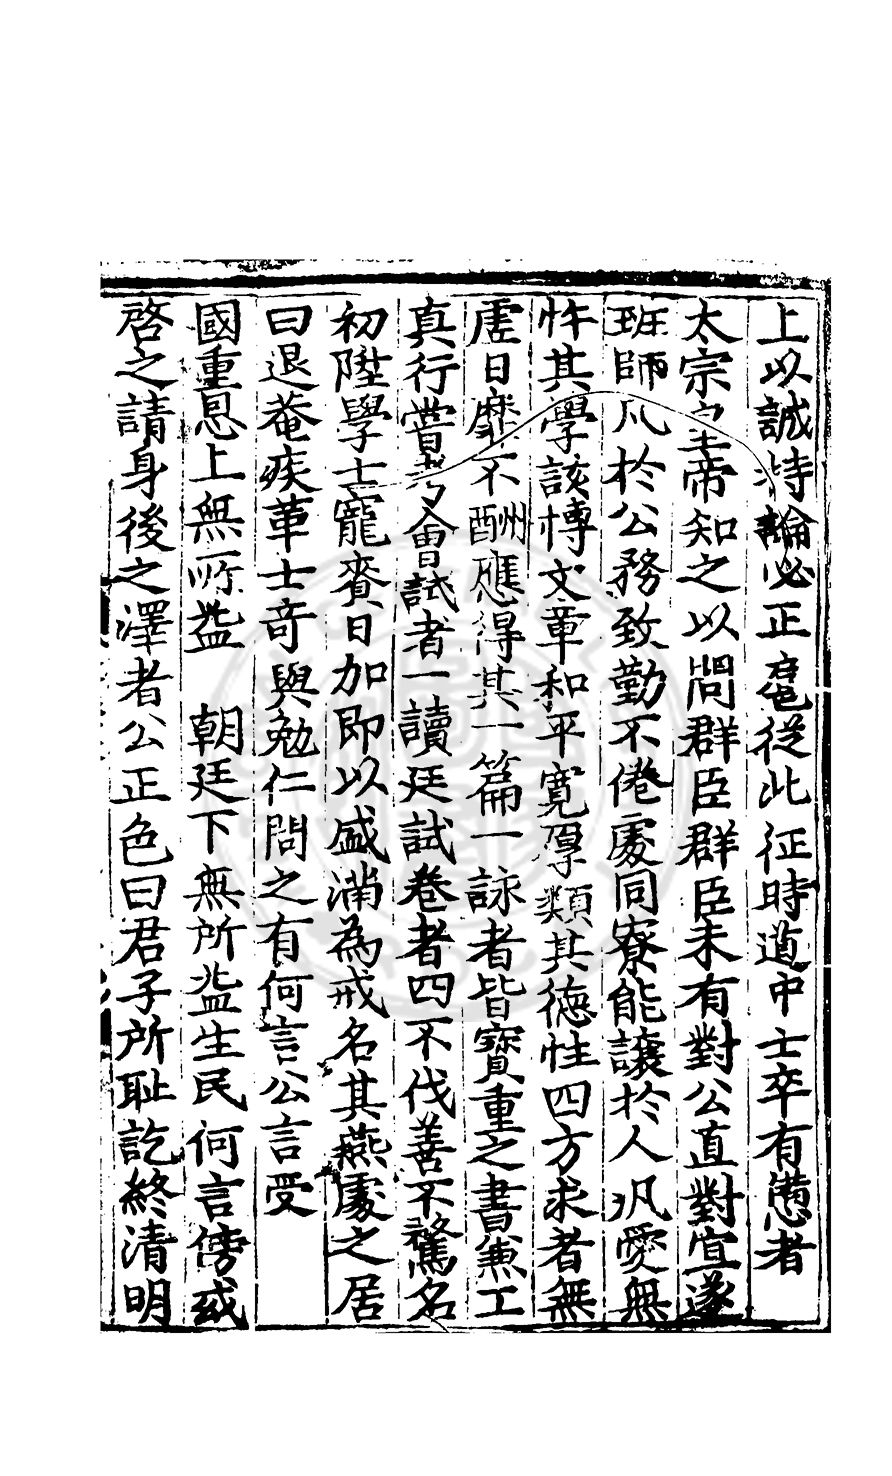 上以誠持論必正扈從北征時道中士卒有憊者
太宗皇帝知之以問群臣群臣未有對公直對宜遂
班師凡於公務致勤不倦處同寮能讓於人汎愛無
忤其學該博文章和平寬厚類其德性四方求者無
虛日靡不酬應得其一篇一詠者皆寶重之書兼工
真行嘗考會試者一讀廷試卷者四不伐善不騖名
初陞學士寵賚日加即以盛滿為戒名其燕處之居
曰退菴疾革士奇與勉仁問之有何言公言受
國重恩上無所益　朝廷下無所益生民何言傍或
啓之請身後之澤者公正色曰君子所恥訖終清明